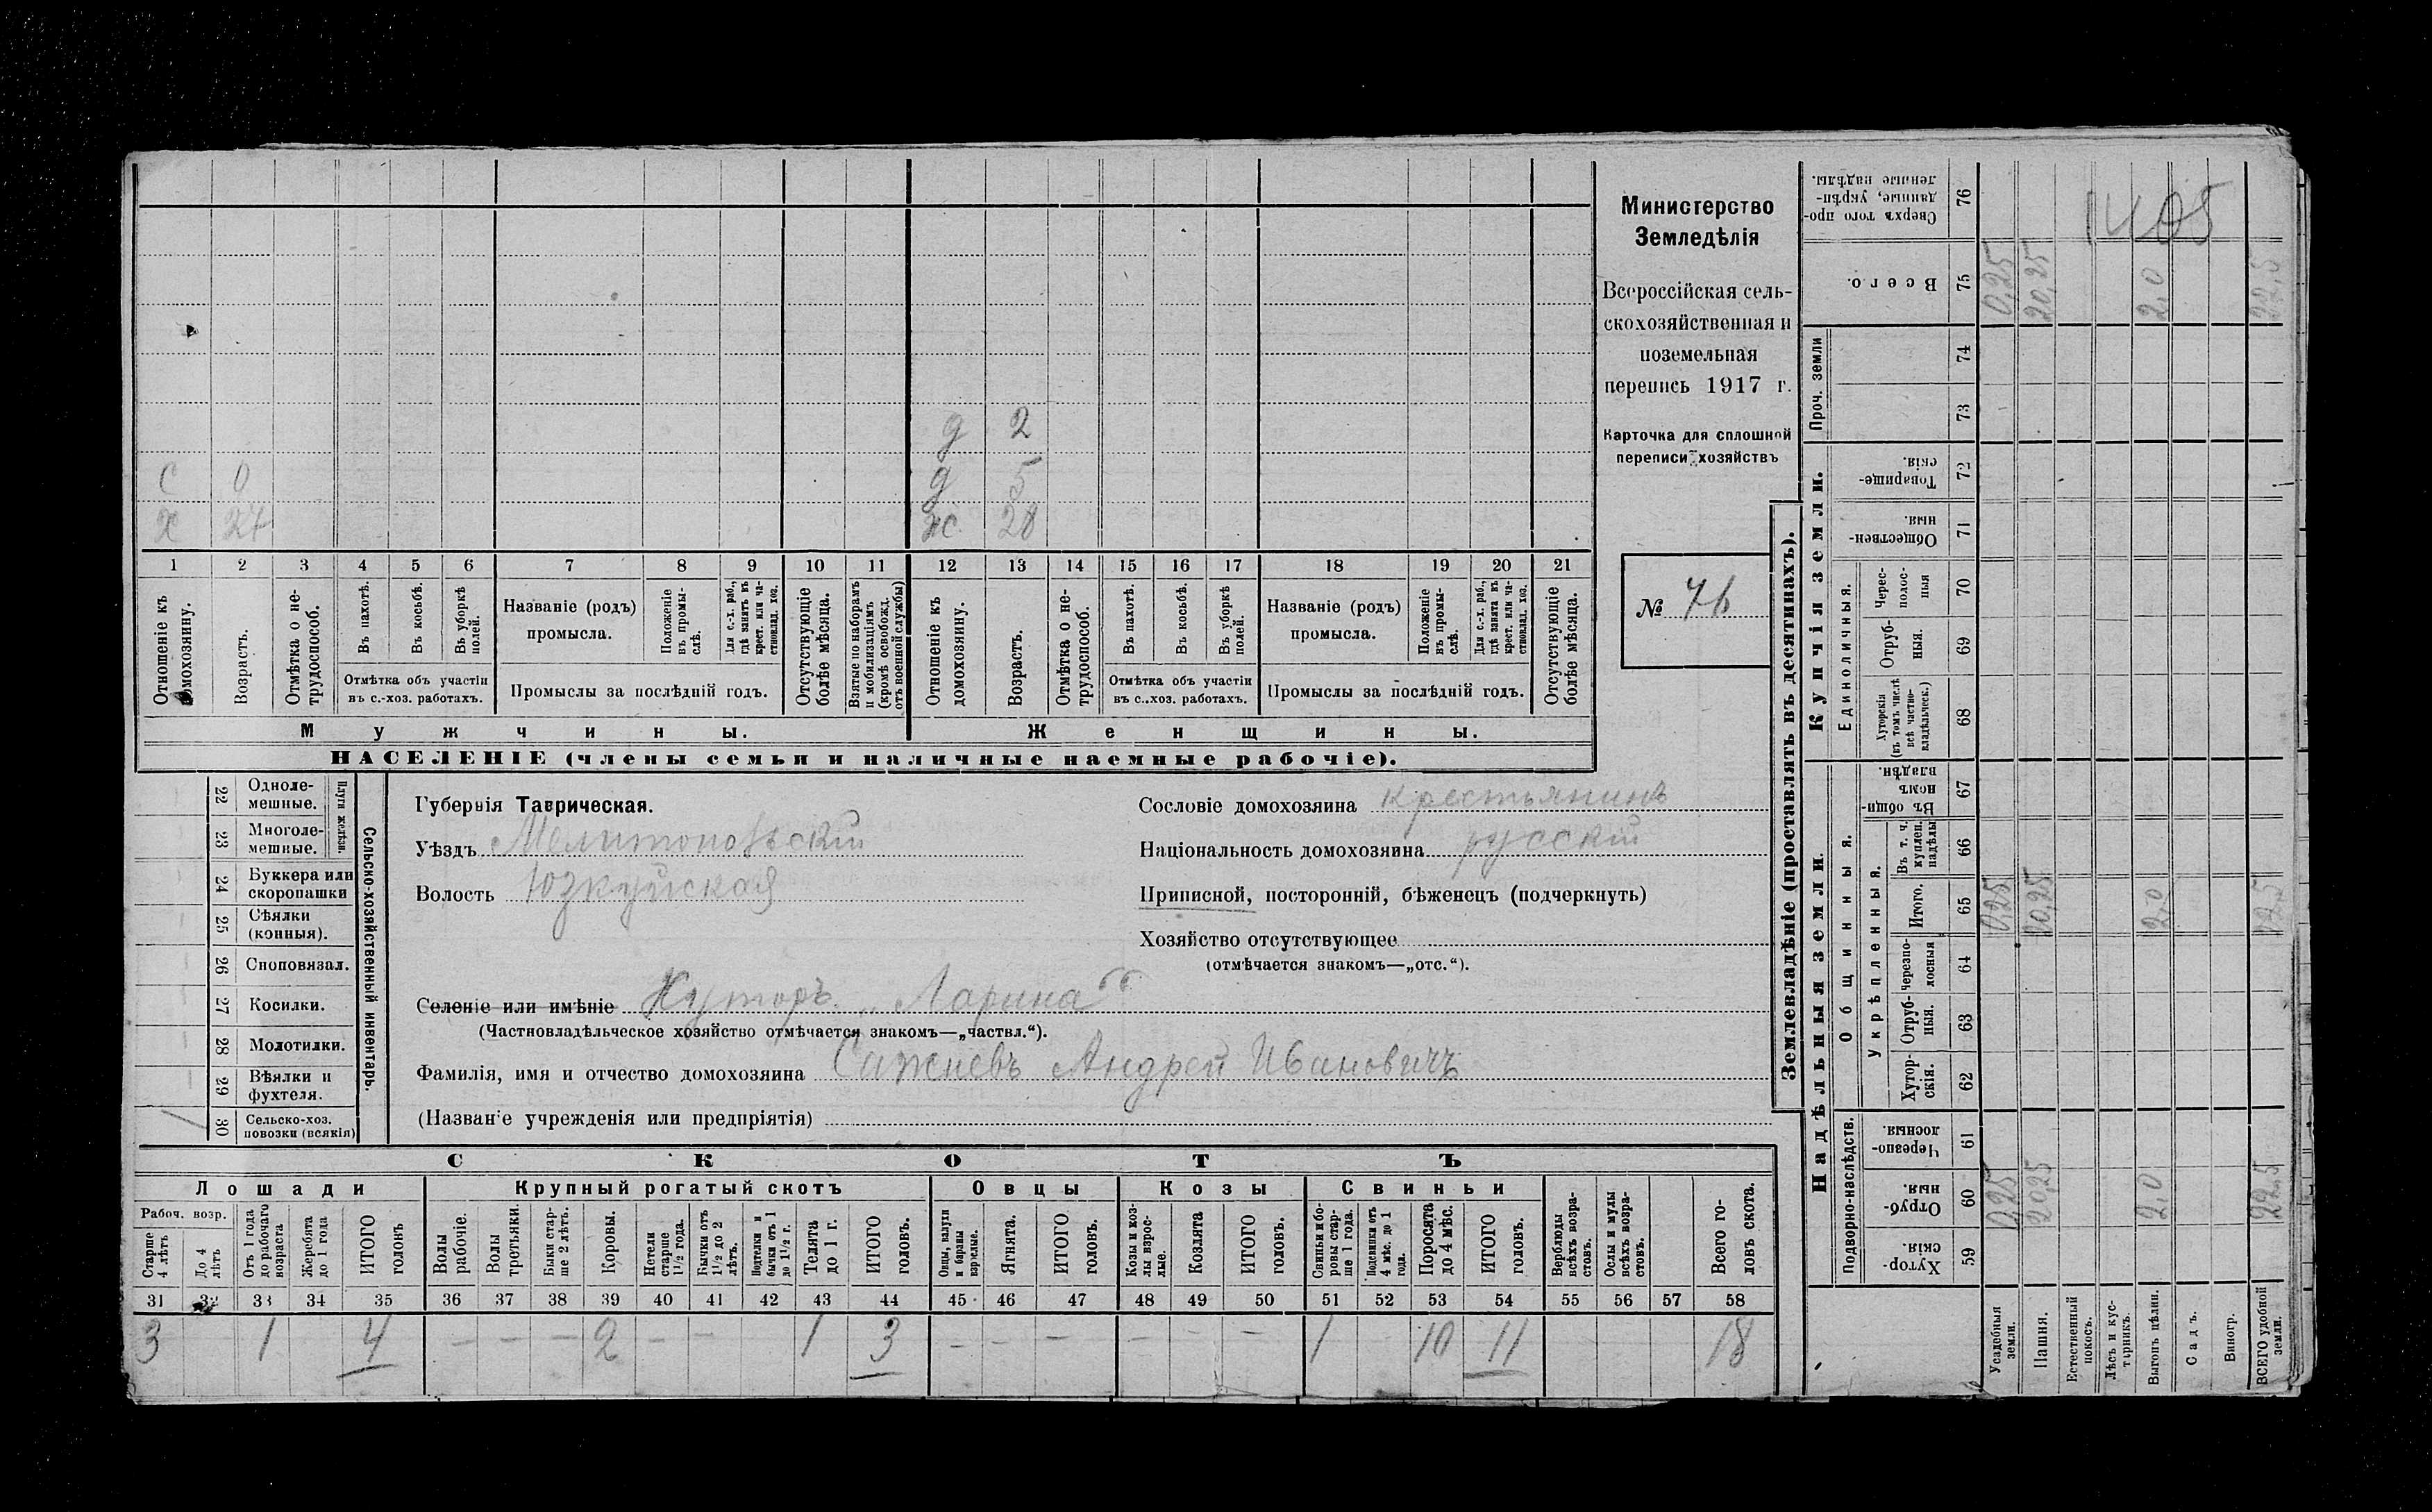 Министерство
Земледѣлія
Всероссійская сель-
скохозяйственная и
поземельная
перепись 1917 г.
Карточка для сплошной
переписи хозяйствъ
№ 76
1405
д 2
С 0 д 5
х 27 ж 28
1 2 3 4 5 6 7 8 9 10 11 12 13 14 15 16 17 18 19 20 21
Отношеніе къ домохозяину.
Возрастъ.
Отмѣтка о не-трудоспособ.
Въ пахотѣ.
Въ косьбѣ.
Въ уборкѣ полей.
Отмѣтка объ участіи
въ с.-хоз. работахъ.
Названіе (родъ)
промысла.
Положеніе въ промы-слѣ.
Для с.-х. раб., гдѣ занятъ въ крест. или ча-стновлад. хоз.
Промыслы за послѣдній годъ.
Отсутствующіе болѣе мѣсяца.
Взятые по наборамъ и мобилизаціямъ (кромѣ освобожд. отъ военной службы)
Отношеніе къ домохозяину.
Возрастъ.
Отмѣтка о не-трудоспособ.
Въ пахотѣ.
Въ косьбѣ.
Въ уборкѣ полей.
Отмѣтка объ участіи
въ с..хоз. работахъ.
Названіе (родъ)
промысла.
Положеніе въ промы-слѣ.
Для с.-х. раб., гдѣ занята въ крест. или ча-стновлад. хоз.
Промыслы за послѣдній годъ.
Отсутствующіе болѣе мѣсяца.
Мужчины. Женщины.
НАСЕЛЕНІЕ (члены семьи и наличные наемные рабочіе).
Сельско-хозяйственный инвентарь.
Плуги желѣзн.
22 Одноле-мешные.
23 Многоле-мешные.
24 Буккера или скоропашки
25 Сѣялки (конныя).
26 Сноповязал.
27 Косилки.
28 Молотилки.
29 Вѣялки и фухтеля.
30 Сельско-хоз. повозки (всякія) 1
Губернія Таврическая.
Уѣздъ Мелитопольскій
Волость Юзкуйская
Сословіе домохозяина крестьянинъ
Національность домохозяина русскій
Приписной, посторонній, бѣженецъ (подчеркнуть)
Хозяйство отсутствующее
(отмѣчается знакомъ—„отс.“).
Селеніе или имѣніе Хуторъ „Ларина“
(Частновладѣльческое хозяйство отмѣчается знакомъ—„частвл.“).
Фамилія, имя и отчество домохозяина Сажневъ Андрей Ивановичъ
(Названіе учрежденія или предпріятія)
СКОТЪ
Лошади Крупный рогатый скотъ Овцы Козы Свиньи
Рабоч. возр.
Старше 4 лѣтъ
До 4 лѣтъ
Отъ 1 года до рабочаго возраста
Жеребята до 1 года
ИТОГО головъ
Волы рабочіе.
Волы третьяки.
Быки стар-ше 2 лѣтъ.
Коровы.
Нетели старше 1½ года.
Бычки отъ 1½ до 2 лѣтъ.
Подтелки и бычки отъ 1 до 1½ г.
Телята до 1 г.
ИТОГО головъ.
Овцы, валухи и бараны взрослые.
Ягнята.
ИТОГО головъ.
Козы и коз-лы взрос-лые.
Козлята
ИТОГО головъ.
Свиньи и бо-ровы стар-ше 1 года.
Подсвинки отъ 4 мѣс. до 1 года.
Поросята до 4 мѣс.
ИТОГО головъ.
Верблюды всѣхъ возра-стовъ.
Ослы и мулы всѣхъ возра-стовъ.
Всего го-ловъ скота.
31 32 33 34 35 36 37 38 39 40 41 42 43 44 45 46 47 48 49 50 51 52 53 54 55 56 57 58
3 1 4 — — — 2 — — 1 3 — — — — — — 1 10 11 18
Землевладѣніе (проставлять въ десятинахъ).
Надѣльныя земли.
Купчія земли.
Проч. земли
Подворно-наслѣдств.
Общинныя.
Укрѣпленныя.
Единоличныя.
59 Хутор-скія.
60 Отруб-ныя.
61 Черезпо-лосныя.
62 Хутор-скія.
63 Отруб-ныя.
64 Черезпо-лосныя
65 Итого.
66 Въ т. ч. куплен. надѣлы
67 Въ общин-номъ владѣн.
68 Хуторскія (въ томъ числѣ всѣ частно-владѣльческ.)
69 Отруб-ныя.
70 Черес-полос-ныя
71 Обществен-ныя.
72 Товарище-скія.
73
74
75 Всего.
76 Сверхъ того про-данные, укрѣп-ленные надѣлы.
Усадебныя земли. 0,25 0,25 0,25
Пашня. 20,25 20,25 20,25
Естественный покосъ.
Лѣсъ и кус-тарникъ.
Выгонъ цѣлин. 2,0 2,0 2,0
Садъ.
Виногр.
ВСЕГО удобной земли. 22.5 22.5 22,5